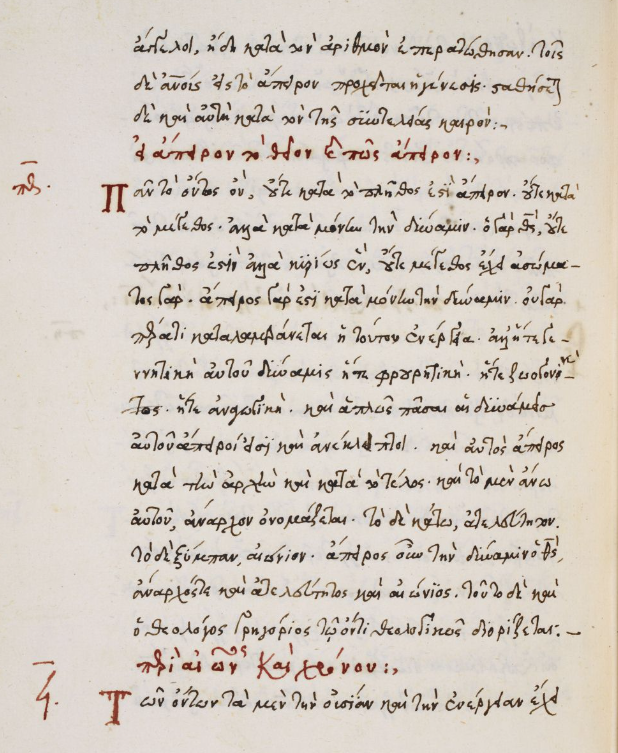 ἄγγελοι, ἤδη κατὰ τὸν ἀριθμὸν ἐπερατώθησαν. τοῖς
δὲ ἀνοις εἰς τὸ ἄπειρον προχεῖται ἡ γένεσις. σταθήσεται
δὲ καὶ αὐτὴ κατὰ τὸν τῆς συντελείας καιρόν:-
εἰ ἄπειρον τὸ θεῖον καὶ πῶς ἄπειρον:,
Πᾶν τὸ ὄντως ὄν, οὔτε κατὰ τὸ πλῆθος ἐστὶ ἄπειρον. οὔτε κατὰ
τὸ μέγεθος. ἀλλὰ κατὰ μόνην τὴν δύναμιν. ὁ γὰρ θς, οὔτε
πλῆθος ἐστὶν ἀλλὰ κυρίως ἓν, οὔτε μέγεθος ἔχει ἀσώμα-
τος γάρ. ἄπειρος γάρ ἐστι κατὰ μόνην τὴν δύναμιν. οὐ γὰρ
πέρατι καταλαμβάνεται ἡ τούτου ἐνέργεια. ἀλλ' ἥτε γε-
ννητικὴ αὐτοῦ δύναμις ἥτε φρουρητικὴ. ἥτε ζωογονι-
κὴ. ἥτε ἀνφωτικὴ. καὶ ἁπλῶς πᾶσαι αἱ δυνάμεις
αὐτοῦ ἄπειροί εἰσι καὶ ἀνέκλειπτοι. καὶ αὐτὸς ἄπειρος
κατὰ τὴν ἀρχὴν καὶ κατὰ τὸ τέλος. καὶ τὸ μὲν ἄνω
αὐτοῦ, ἄναρχον ὀνομάζεται. τὸ δὲ κάτω, ἀτελεύτητον.
τὸ δὲ ξύμπαν, αἰώνιον. ἄπειρος οὖν τὴν δύναμιν ὁ θς,
ἄναρχός τε καὶ ἀτελεύτητος καὶ αἰώνιος. τοῦτο δὲ καὶ
ὁ θεολόγος Γρηγόριος τῷ ὄντι θεολογικῶς διορίζεται:-
περὶ αἰῶνος καὶ χρόνου:,
Τῶν ὄντων τὰ μὲν τὴν οὐσίαν καὶ τὴν ἐνέργειαν ἔχει